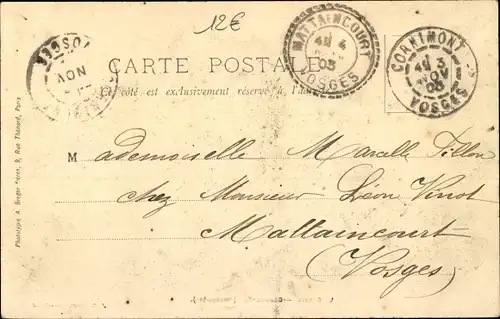 12€
MATTAINCOURT
4 NOV 03
VOSGES
CORNIMONT
3 NOV 03
VOSGES
NOV
CARTE POSTALE
Ce côté est exclusivement réservé à l'adresse
Mademoiselle Marcelle Tillon
chez Monsieur Léon Vinot
Mattaincourt
(Vosges)
Phototypie A. Breger Frères, 9, Rue Thénard, Paris